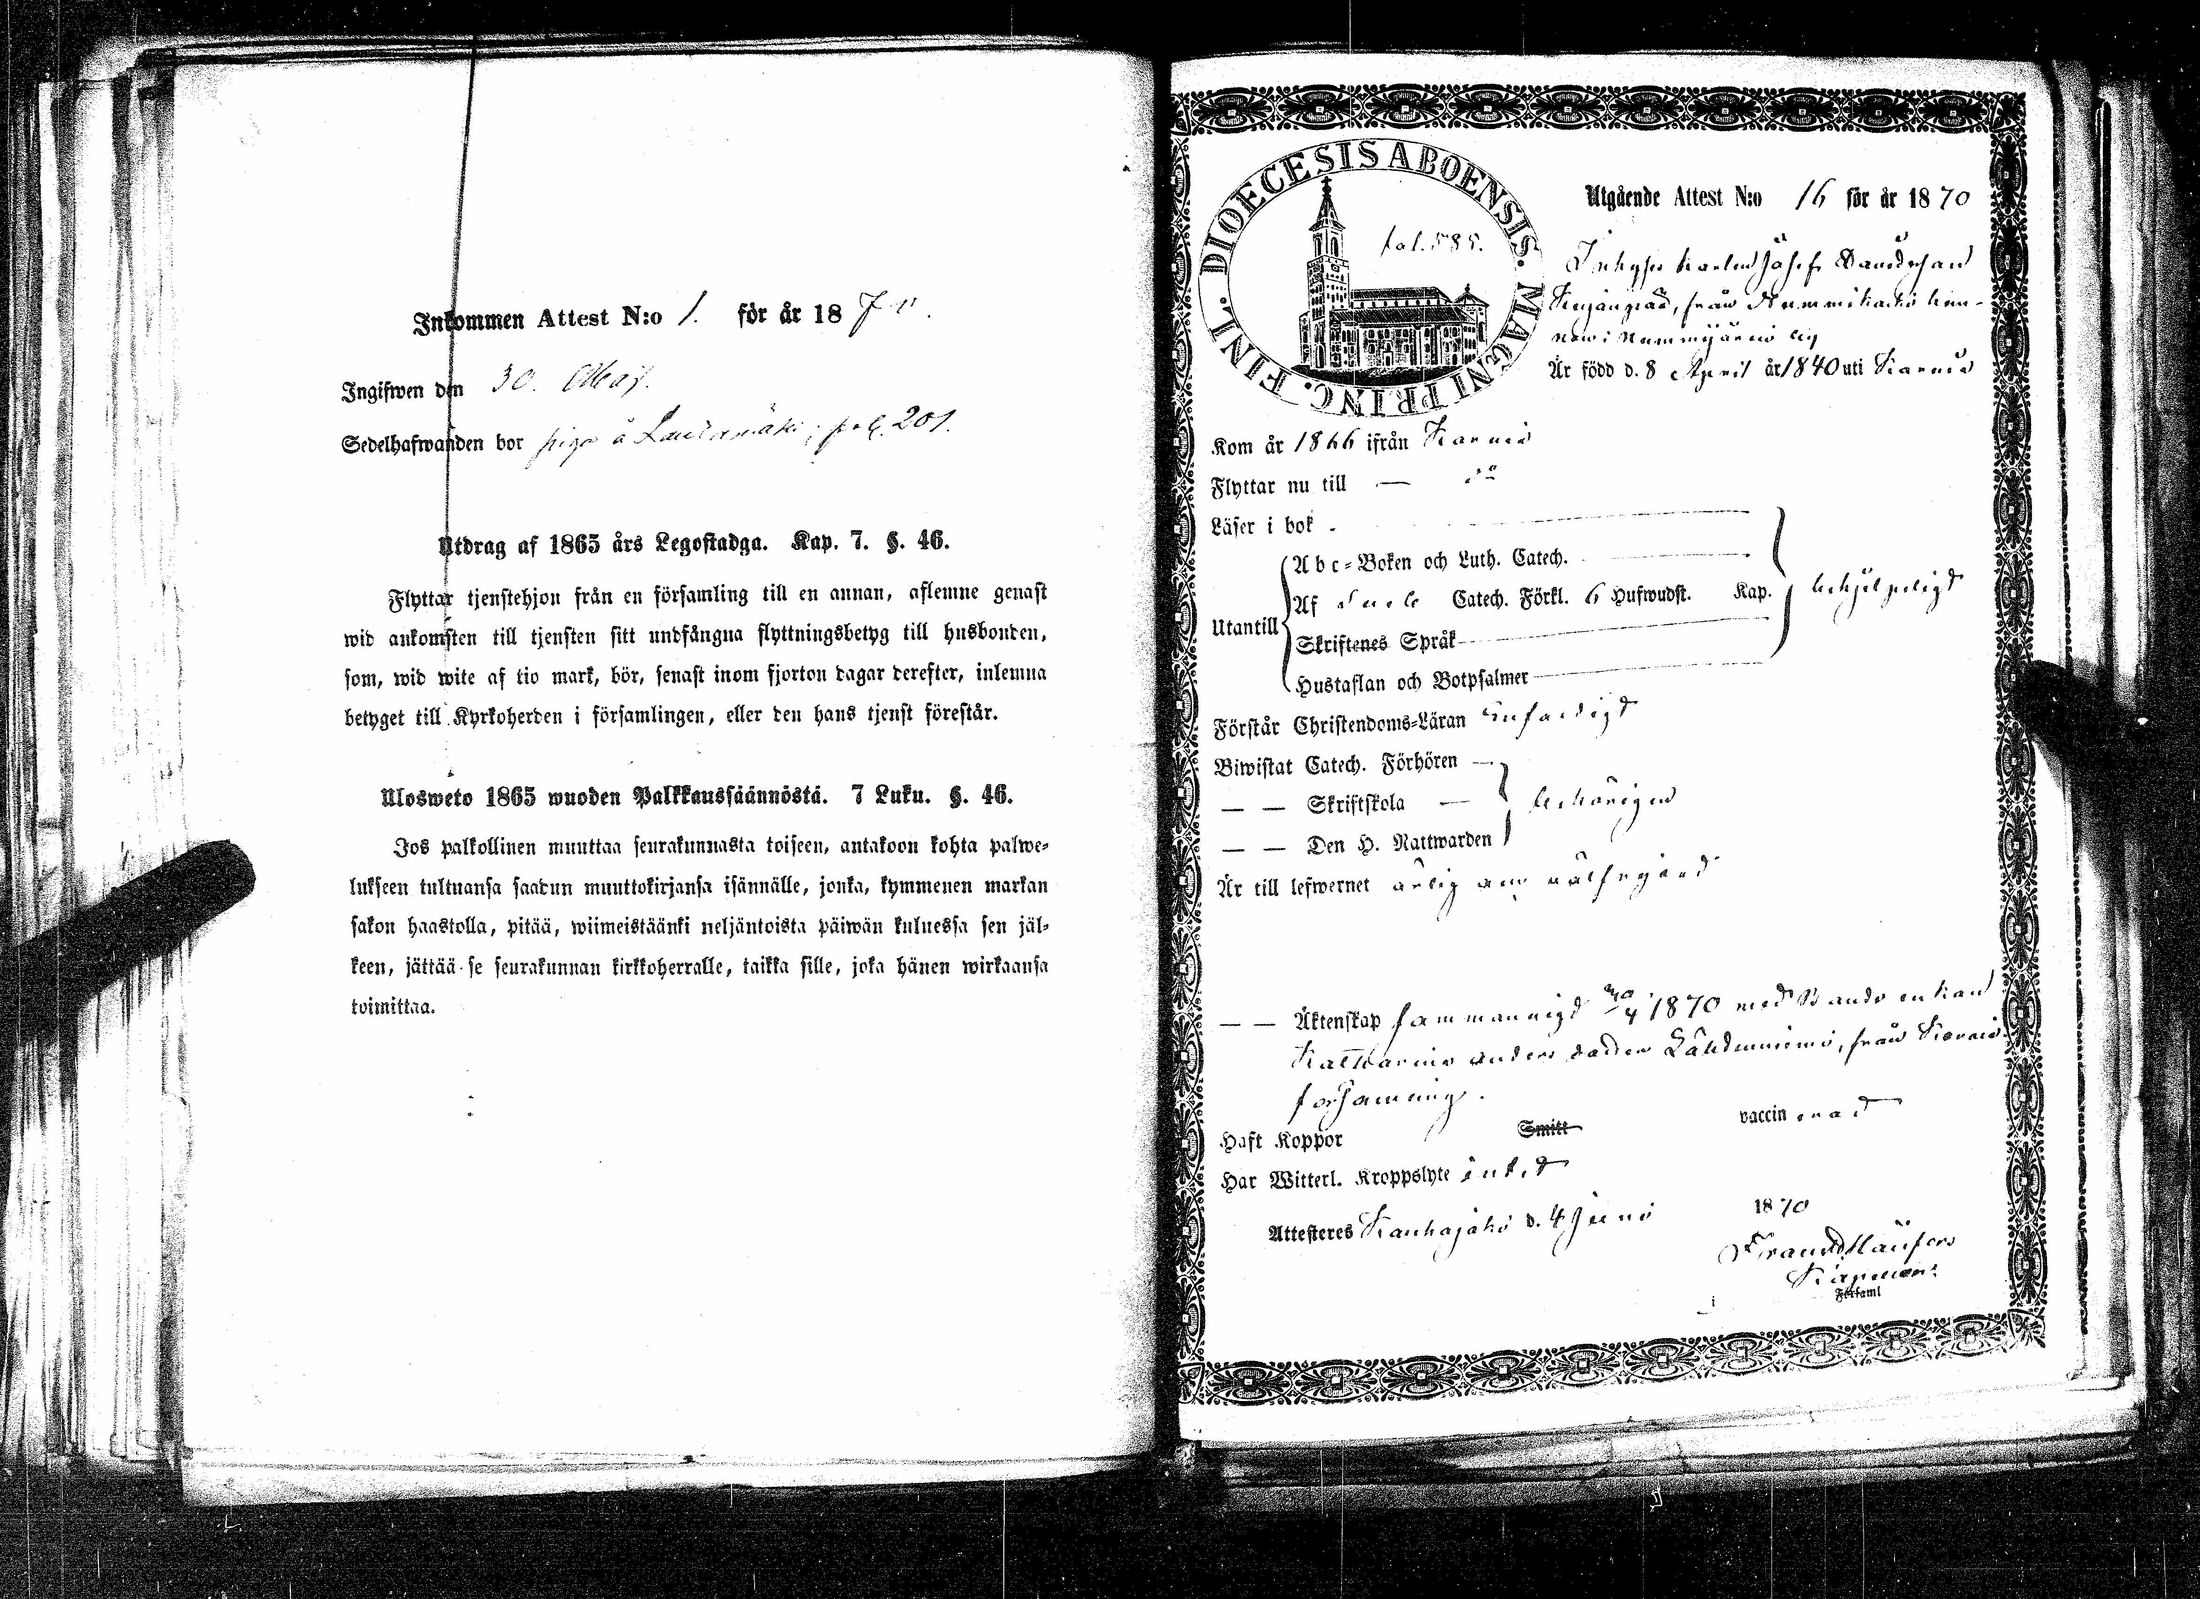 Inkommen Attest N:o 1. för år 1870.
Ingifwen den 30. Maj.
Sedelhafwanden bor piga å Lautamäki, pol. 201.
Utdrag af 1865 års Legostadga. Kap. 7. §. 46.
Flyttar tjenstehjon från en församling till en annan, aflemne genast
wid ankomsten till tjensten sitt undfångna flyttningsbetyg till husbonden,
som, wid wite af tio mark, bör, senast inom fjorton dagar derefter, inlemna
betyget till Kyrkoherden i församlingen, eller den hans tjenst förestår.
Ulosweto 1865 wuoden Palkkaussäännöstä. 7 Luku. §. 46.
Jos palkollinen muuttaa seurakunnasta toiseen, antakoon kohta palwe-
lukseen tultuansa saadun muuttokirjansa isännälle, jonka, kymmenen markan
sakon haastolla, pitää, wiimeistäänki neljäntoista päiwän kuluessa sen jäl-
keen, jättää se seurakunnan kirkkoherralle, taikka sille, joka hänen wirkaansa
toimittaa.
FINL. DIOECESIS ABOENSIS. MAGNI PRINC.
fol. 585.
Utgående Attest N:o 16 för år 1870
Inhyses karlen Josef
från Nummikoski hem-
man i Nummijärvi by
Är född d. 8 April år 1840 uti Karvia
Kom år 1866 ifrån Karvia
Flyttar nu till — d:o
Läser i bok
Abc-Boken och Luth. Catech.
Utantill
Af Catech. Förkl. 6 Hufwudst. Kap. behjelpeligt
Skriftenes Språk
Hustaflan och Botpsalmer
Förstår Christendoms-Läran enfaldigt
Biwistat Catech. Förhören —
— — Skriftskola — behörigen
— — Den H. Nattwarden
Är till lefwernet ärlig och välfrejdad
— — Äktenskap sammanvigd 1870 med Bondeenkan
Katharina Anders dotter från Karvia
församling.
Haft Koppor Smitt vaccinerad
Har Witterl. Kroppslyte intet
Attesteres Kauhajoki d. 4 Juni 1870
Frans
Kapellan
Församl